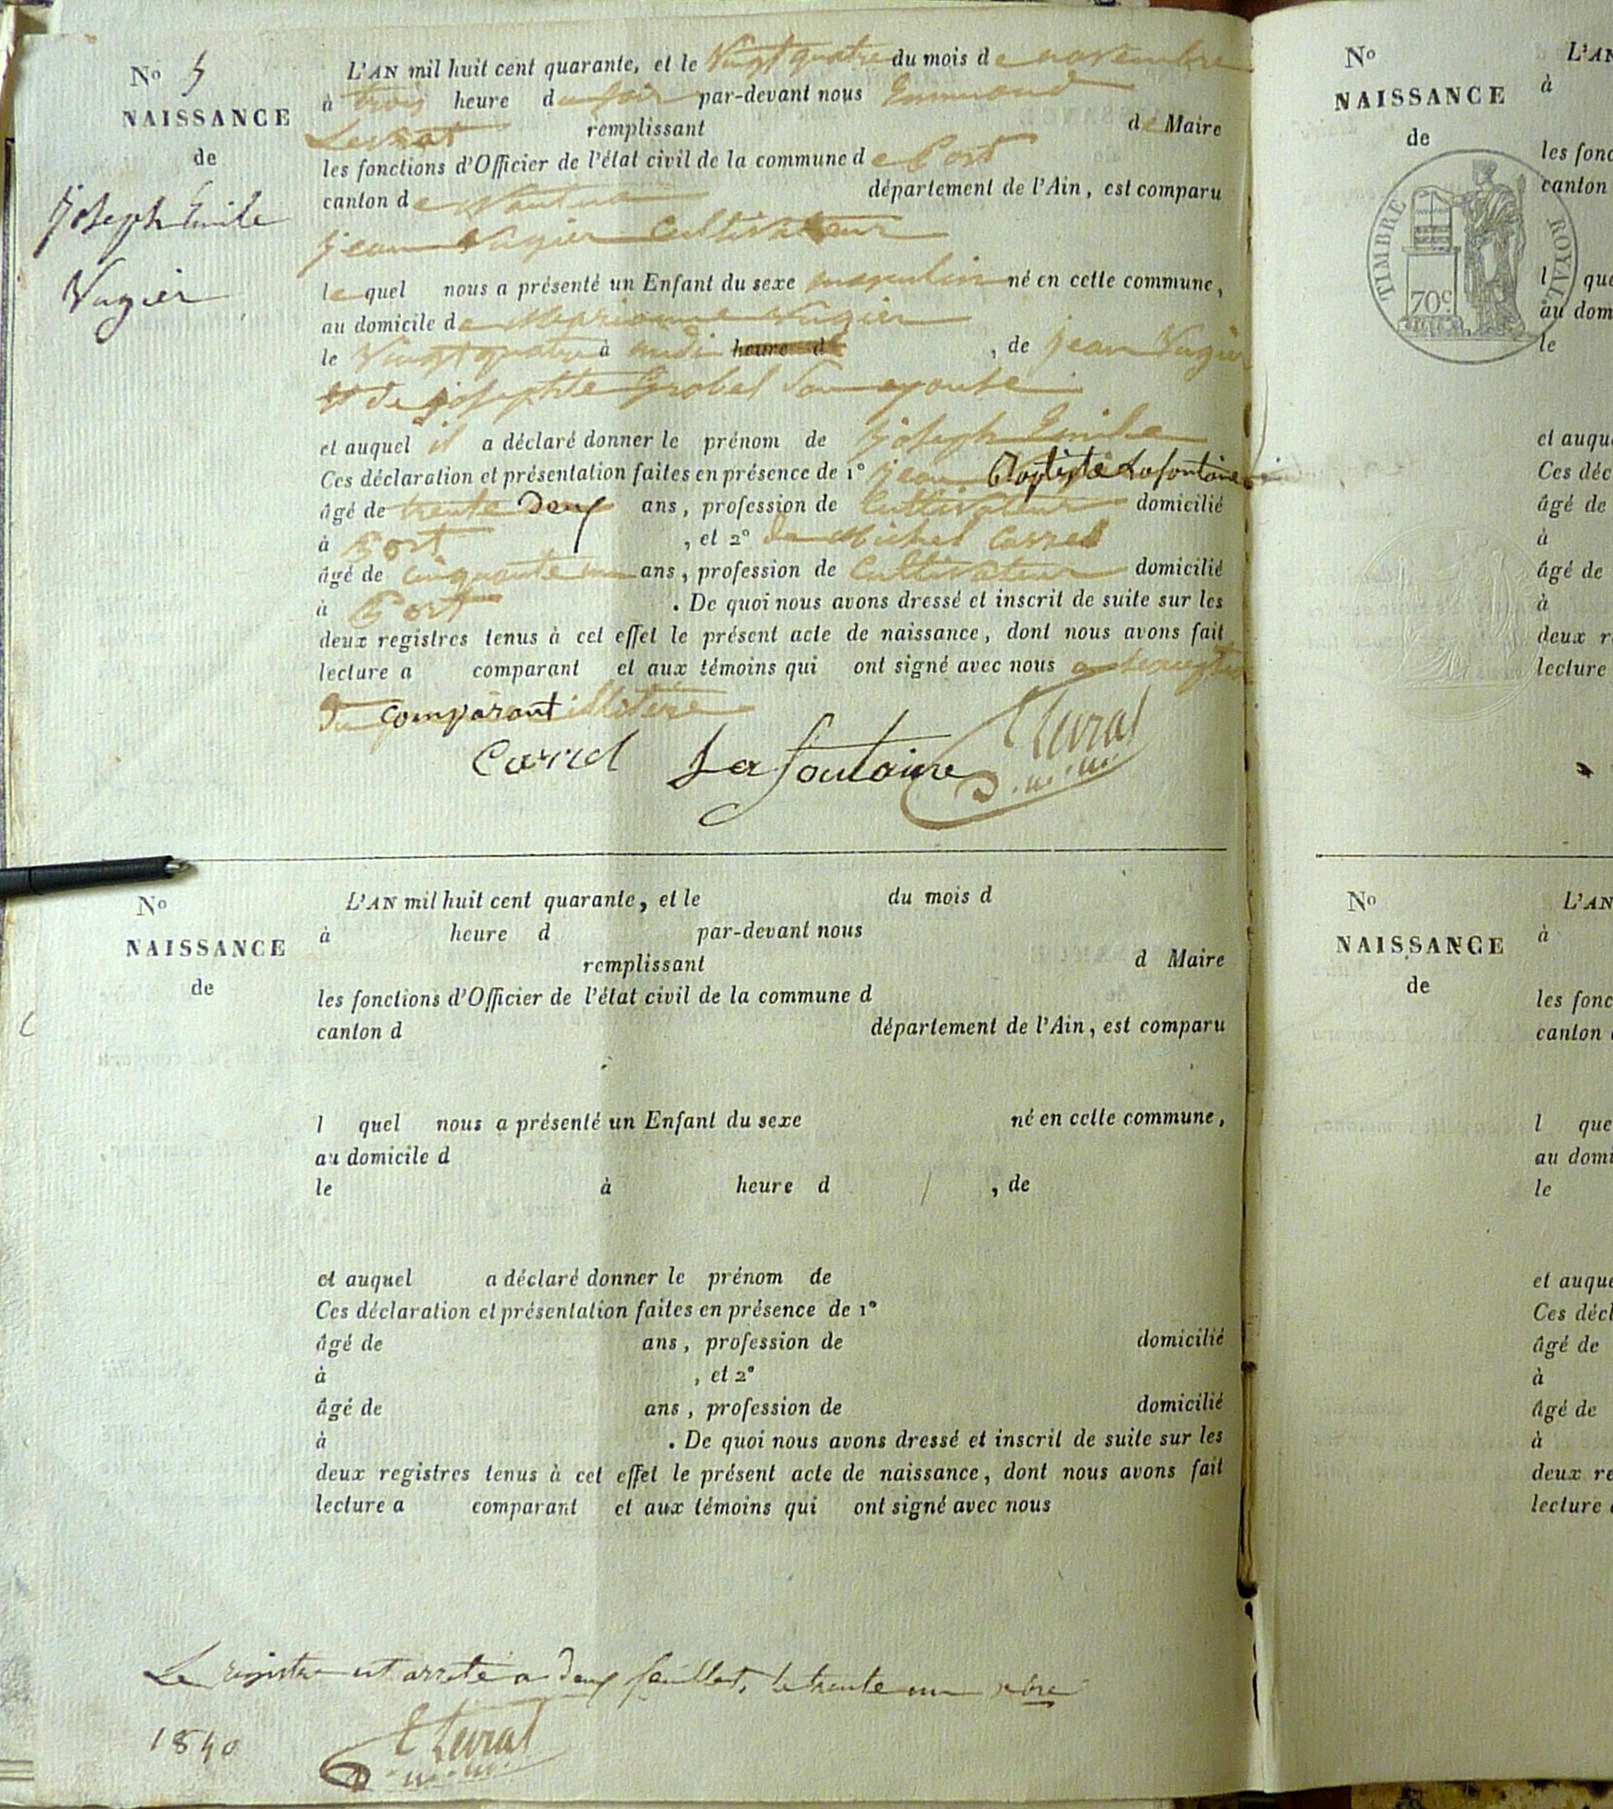 N° 5
NAISSANCE
de
joseph Emile
Vugier
L'AN mil huit cent quarante, et le Vingt quatre du mois de novembre
à trois heure du soir par-devant nous Emmond
Levrat remplissant de Maire
les fonctions d'Officier de l'état civil de la commune de Port
canton de Nantua département de l'Ain, est comparu
jean Vugier Cultivateur
le quel nous a présenté un Enfant du sexe masculin né en cette commune,
au domicile de Vugier
le Vingt quatre à midi heure d , de jean Vugier
et de josephte Grobel Son epouse
et auquel il a déclaré donner le prénom de joseph Emile
Ces déclaration et présentation faites en présence de 1° jean Baptiste Lafontaine
âgé de trente Deux ans, profession de Cultivateur domicilié
à Port , et 2° de Michel Carrel
âgé de cinquante un ans, profession de Cultivateur domicilié
à Port . De quoi nous avons dressé et inscrit de suite sur les
deux registres tenus à cet effet le présent acte de naissance, dont nous avons fait
lecture a comparant et aux témoins qui ont signé avec nous
Du comparant
Carrel Lafontaine Levrat
N°
NAISSANCE
de
L'AN mil huit cent quarante, et le du mois d
à heure d par-devant nous
remplissant d Maire
les fonctions d'Officier de l'état civil de la commune d
canton d département de l'Ain, est comparu
l quel nous a présenté un Enfant du sexe né en cette commune,
au domicile d
le à heure d , de
et auquel a déclaré donner le prénom de
Ces déclaration et présentation faites en présence de 1°
âgé de ans, profession de domicilié
à , et 2°
âgé de ans, profession de domicilié
à . De quoi nous avons dressé et inscrit de suite sur les
deux registres tenus à cet effet le présent acte de naissance, dont nous avons fait
lecture a comparant et aux témoins qui ont signé avec nous
Le registre est arreté a Deux feuillets, le trente un xbre
1840
Levrat
N°
NAISSANCE
de
TIMBRE ROYAL
70c
L'AN
à
les fonc
canton
l que
au dom
le
et auqu
Ces déc
âgé de
à
âgé de
à
deux r
lecture
N°
NAISSANCE
de
L'AN
à
les fonc
canton
l que
au domi
le
et auque
Ces décl
âgé de
à
âgé de
à
deux re
lecture